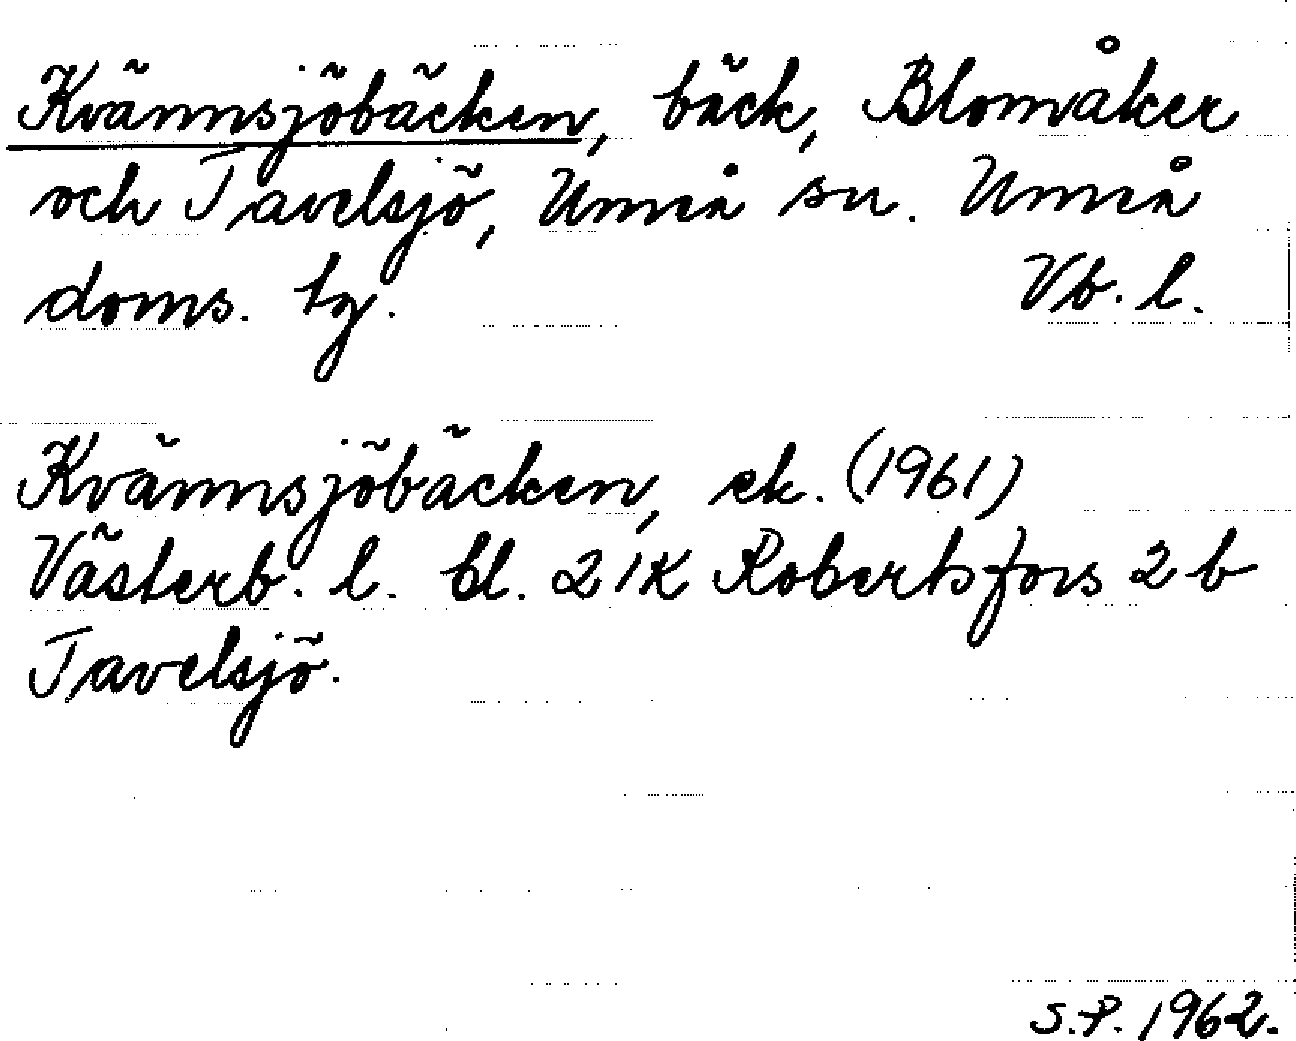 Kvännsjöbäcken, bäck, Blomåker
och Tavelsjö, Umeå sn. Umeå
doms. tg. Vb. l.
Kvännsjöbäcken, ek. (1961)
Västerb. l. bl. 21K Robertsfors 2 b
Tavelsjö.
S.P. 1962.